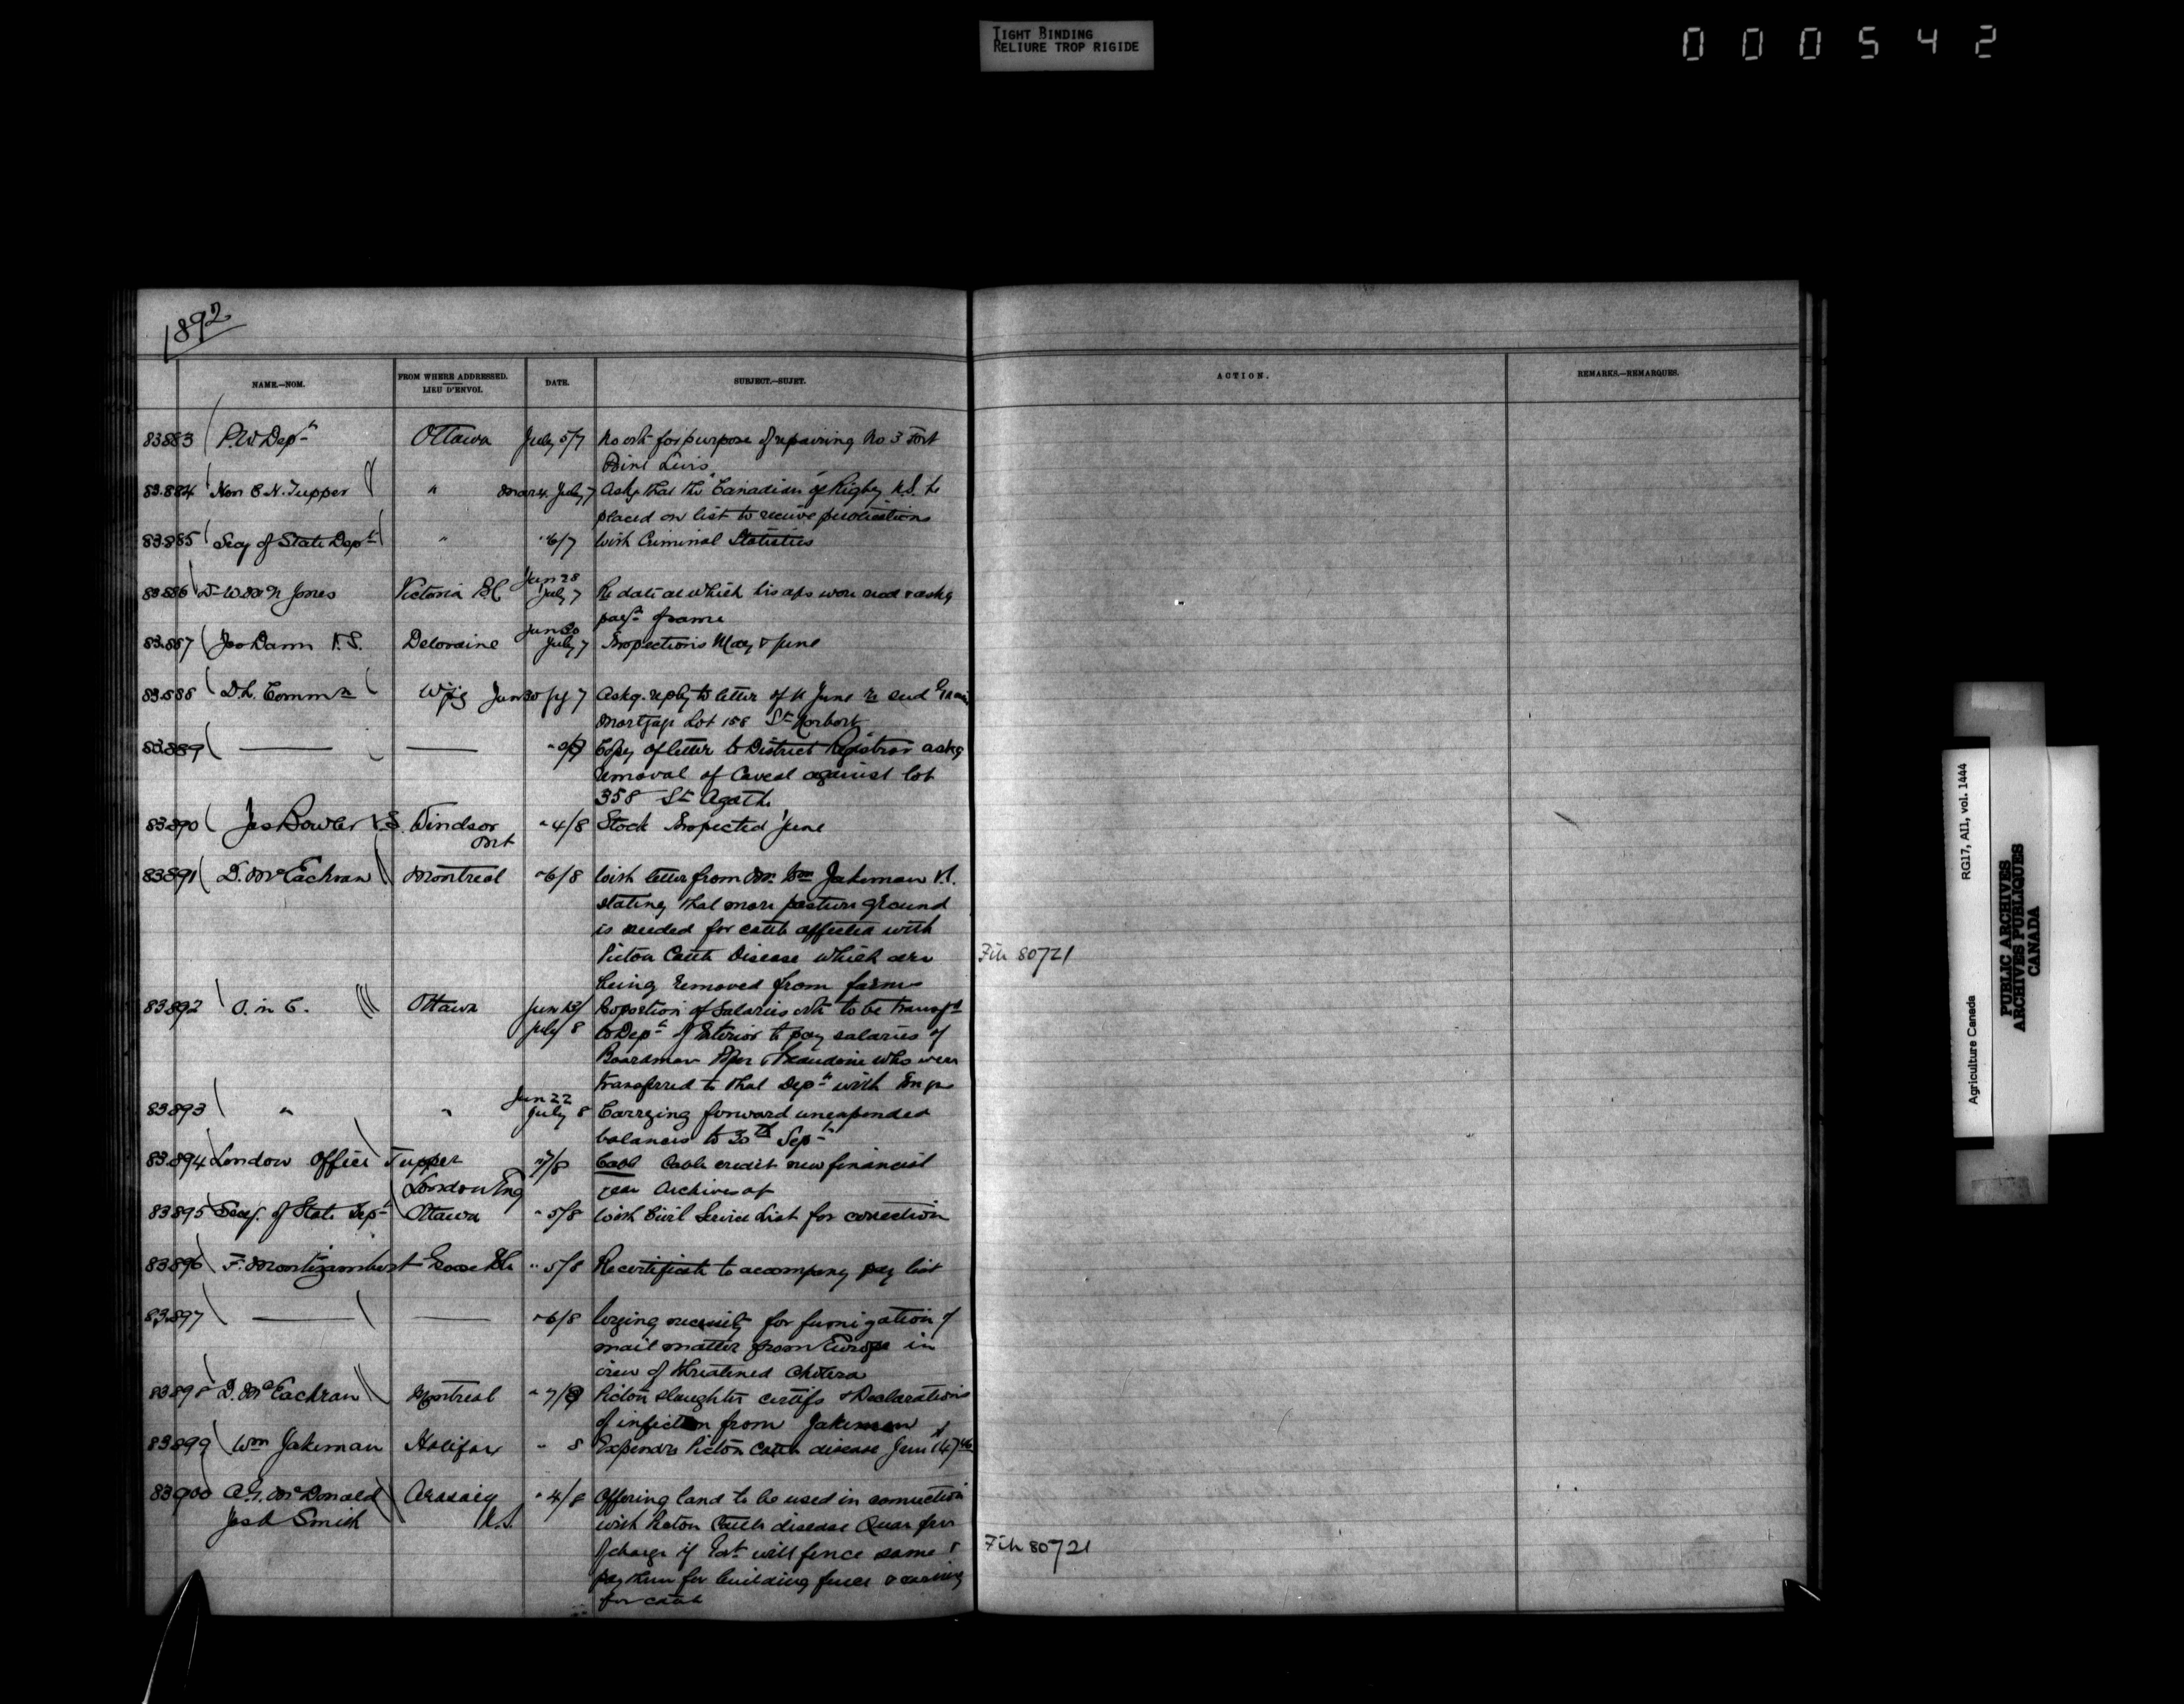 TIGHT BINDING
RELIURE TROP RIGIDE
000542
1892
NAME.—NOM.
FROM WHERE ADDRESSED.
LIEU D'ENVOI.
DATE.
SUBJECT.—SUJET.
ACTION.
REMARKS.—REMARQUES.
83883 P.W. Dept Ottawa July 5/7 No vote for purpose of repairing No. 3 Fort
Point Levis
83884 Hon C.H. Tupper " July 7 Askg that the "Canadian" of Digby N.S. be
placed on list to receive publications
83885 Secy of State Dept " " 6/7 With Criminal Statistics
83886 Jones Victoria B.C. Jun 28 July 7 Re date at which his a/cs were recd & askg
payt of same
83887 Jno Dann V.S. Deloraine Jun 30 July 7 Inspections May & June
83888 D.L. Commr Wpg Jun 30 Jy 7 Askg. reply to letter of 11 June re
mortgage Lot 158 St Norbert
83889 — — Copy of letter to District Registrar askg
removal of Caveat against lot
358 St Agathe
83890 Jas Bowler V.S. Windsor Ont " 4/8 Stock Inspected June
83891 D. McEachran Montreal " 6/8 With letter from Mr. Wm Jakeman V.S.
stating that more pasture ground
is needed for cattle affected with
Picton Cattle Disease which are
being removed from farms
File 80721
83892 O. in C. Ottawa July 8 Proportion of Salaries vote to be transfd
to Dept of Interior to pay salaries of
Boardman & who were
transferred to that Dept with
83893 " " Jun 22 July 8 Carrying forward unexpended
balances to 30th Sept
83894 London Office Tupper London Eng " 7/8 Cable Cable credit new financial
year Archives a/c
83895 Secy. of State Dept Ottawa " 5/8 With Civil Service List for correction
83896 F. Montizambert Grosse Ile " 5/8 Re certificate to accompany pay list
83897 — — " 6/8 Urging necessity for fumigation of
mail matter from Europe in
view of threatened Cholera
83898 D. McEachran Montreal " 7/8 Picton slaughter certifs & Declarations
of infection from Jakeman
83899 Wm Jakeman Halifax " 8 Expendre Picton Cattle disease June
83900 A.G. McDonald Arasaig N.S. " 4/8 Offering land to be used in connection
Smith with Picton Cattle disease Quar free
of charge if Govt will fence same &
pay them for building fence & caring
for cattle
File 80721
Agriculture Canada RG17, AII, vol. 1444
PUBLIC ARCHIVES
ARCHIVES PUBLIQUES
CANADA